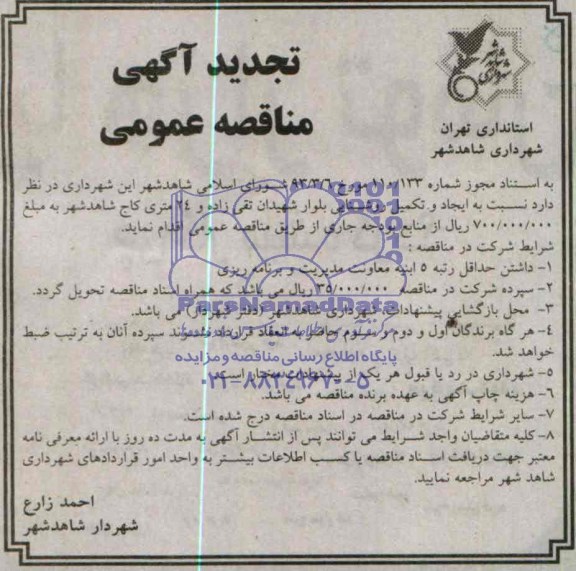 تجدید آگهی
مناقصه عمومی
استانداری تهران
شهرداری شاهدشهر
به استناد مجوز شماره ۱۱۰/۱۳۳ مورخ ۹۳/۳/۶ شورای اسلامی شاهدشهر این شهرداری در نظر
دارد نسبت به ایجاد و تکمیل روشنایی بلوار شهیدان تقی زاده و ۲۴ متری کاج شاهدشهر به مبلغ
۷۰۰/۰۰۰/۰۰۰ ریال از منابع بودجه جاری از طریق مناقصه عمومی اقدام نماید.
شرایط شرکت در مناقصه :
۱- داشتن حداقل رتبه ۵ ابنیه معاونت مدیریت و برنامه ریزی
۲- سپرده شرکت در مناقصه ۳۵/۰۰۰/۰۰۰ ریال می باشد که همراه اسناد مناقصه تحویل گردد.
۳- محل بازگشایی پیشنهادات، شهرداری شاهدشهر (دفتر شهردار) می باشد.
ParsNamadData
۴- هر گاه برندگان اول و دوم و سوم حاضر به انعقاد قرارداد نشوند سپرده آنان به ترتیب ضبط
خواهد شد.
پایگاه اطلاع رسانی مناقصه و مزایده
۵- شهرداری در رد یا قبول هر یک از پیشنهادات مختار است.
۰۲۱-۸۸۳۴۹۶۷۰-۵
۶- هزینه چاپ آگهی به عهده برنده مناقصه می باشد.
۷- سایر شرایط شرکت در مناقصه در اسناد مناقصه درج شده است.
۸- کلیه متقاضیان واجد شرایط می توانند پس از انتشار آگهی به مدت ده روز با ارائه معرفی نامه
معتبر جهت دریافت اسناد مناقصه یا کسب اطلاعات بیشتر به واحد امور قراردادهای شهرداری
شاهد شهر مراجعه نمایند.
احمد زارع
شهردار شاهدشهر